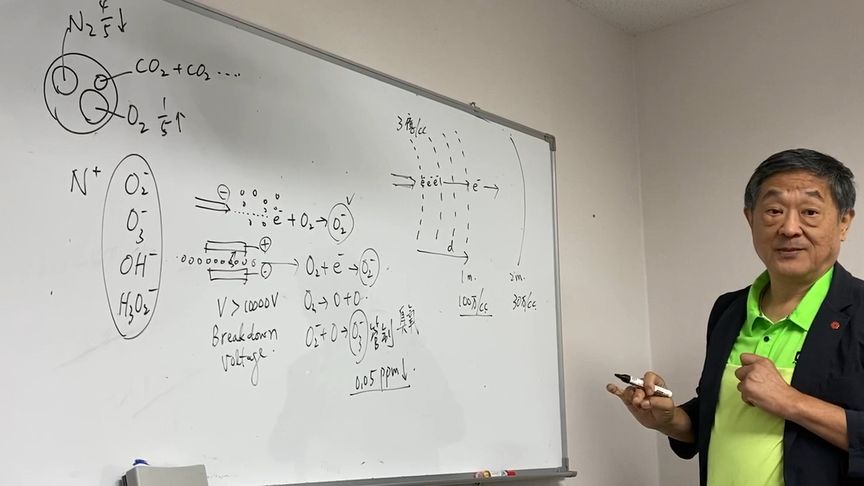 N₂ 4/5 ↓
CO₂ + CO₂ ····
O₂ 1/5 ↑
N⁺
O₂⁻
O₃⁻
OH⁻
H₃O₂⁻
⊖
e⁻ + O₂ → O₂⁻
⊕
⊖
O₂ + e⁻ → O₂⁻
V > 10000V
Breakdown
Voltage.
O₂ → O + O
O₂⁻ + O → O₃⁻ 管制 臭氧
0.05 ppm ↓
3億/cc
e⁻ e⁻ e⁻ → e⁻ →
d
1m.
2m.
100万/cc
30万/cc